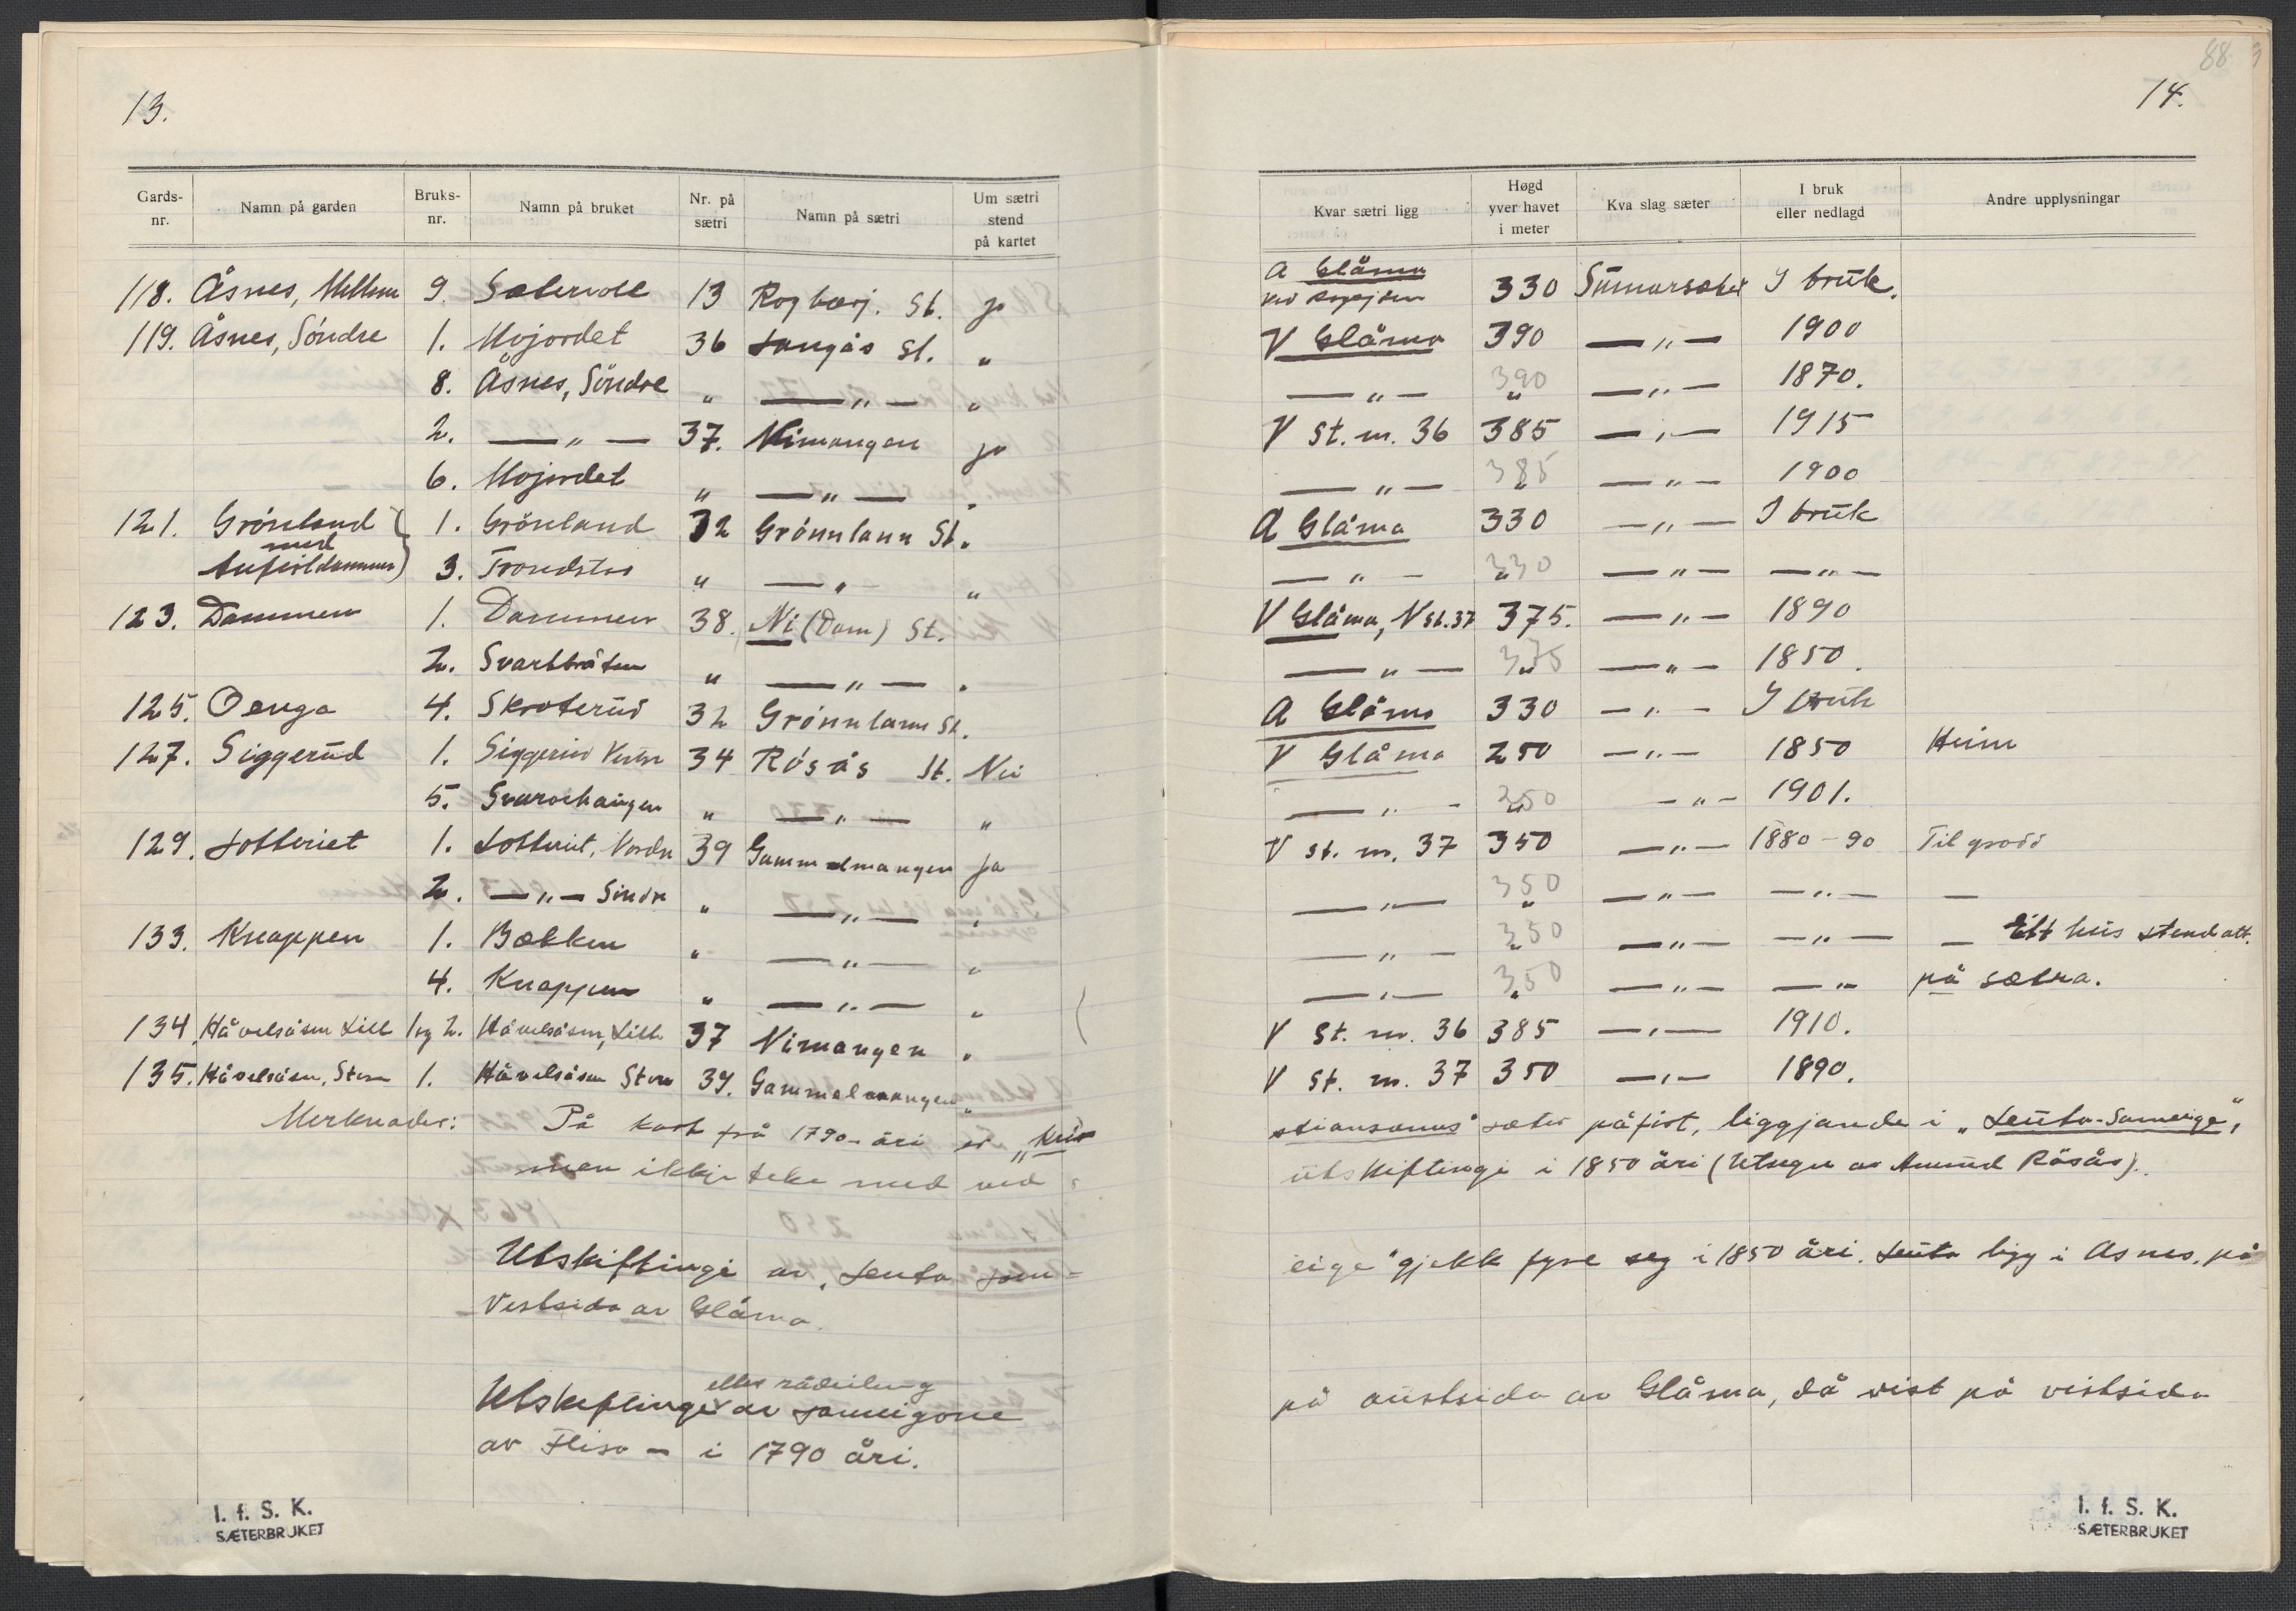 13.
Gards-nr. Namn på garden Bruks-nr. Namn på bruket Nr. på sætri Namn på sætri Um sætri stend på kartet
118. Åsnes, Mellem 9. 13 St. ja
119. Åsnes, Söndre 1. Mojordet 36 Langås St. "
8. Åsnes, Söndre " — " — "
2. — " — 37. Nimangen ja
6. Mojordet " — " — "
121. Grönland med 1. Grönland 32 Grönnlann St. "
3. Trondstor " — " — "
123. Dammen 1. Dammen 38. Ni (Dam) St.
2. Svartbråten " — " — "
125. Oenga 4. Skroterud 32 Grönnlann St.
127. Siggerud 1. Siggerud Vestre 34 Rösås St. Nei
5. " — " — "
129. Lotteriet 1. Lotteriet, Nordre 39 Gammelmangen ja
2. — " — Söndre " — " — "
133. Knappen 1. Bakken " — " — "
4. Knappen " — " — "
134. Håvelsåsen Lille 1 og 2. Håvelsåsen, Lille 37 Nimangen "
135. Håvelsåsen, Store 1. Håvelsåsen Store 39. Gammelmangen "
Merknader: På kart frå 1790-åri er "Kris
men ikkje teke med ved
Utskiftingi av "Lenta sam=
Vestsida av Glåma.
eller rådeilung
Utskiftingi av sameigone
av Flisa - i 1790 åri.
I. f. S. K.
SÆTERBRUKET
88
14.
Kvar sætri ligg Høgd yver havet i meter Kva slag sæter I bruk eller nedlagd Andre upplysningar
A Glåma
ved 330 Sumarsæter I bruk.
V Glåma 390 — " — 1900
— " — 390 — " — 1870.
V St. nr. 36 385 — " — 1915
— " — 385 — " — 1900
A Glåma 330 — " — I bruk
— " — 330 — " — — " —
V Glåma, N St. 37 375. — " — 1890
— " — 375 — " — 1850.
A Glåma 330 — " — I bruk
V Glåma 250 — " — 1850 Heim
— " — — " — 1901.
V St. nr. 37 350 — " — 1880-90 Tilgrodd
— " — 350 — " — — " — —
— " — 350 — " — — " — — Eitt hus stend att.
— " — 350 — " — — " — på sætra.
V St. nr. 36 385 — " — 1910.
V St. nr. 37 350 — " — 1890.
stiansonus" sæter påført, liggjande i "Lenta-Sameige",
utskiftingi i 1850 åri (Utsegn av Amund Rösås).
eige" gjekk fyre seg i 1850 åri. Lenta ligg i Åsnes, på
på austsida av Glåma, då vist på vestsida
I. f. S. K.
SÆTERBRUKET